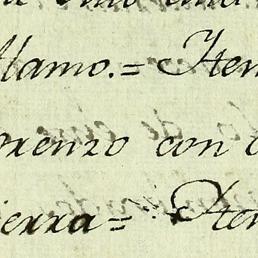 lamo.= Iten
orenzo con
ierra= Iten